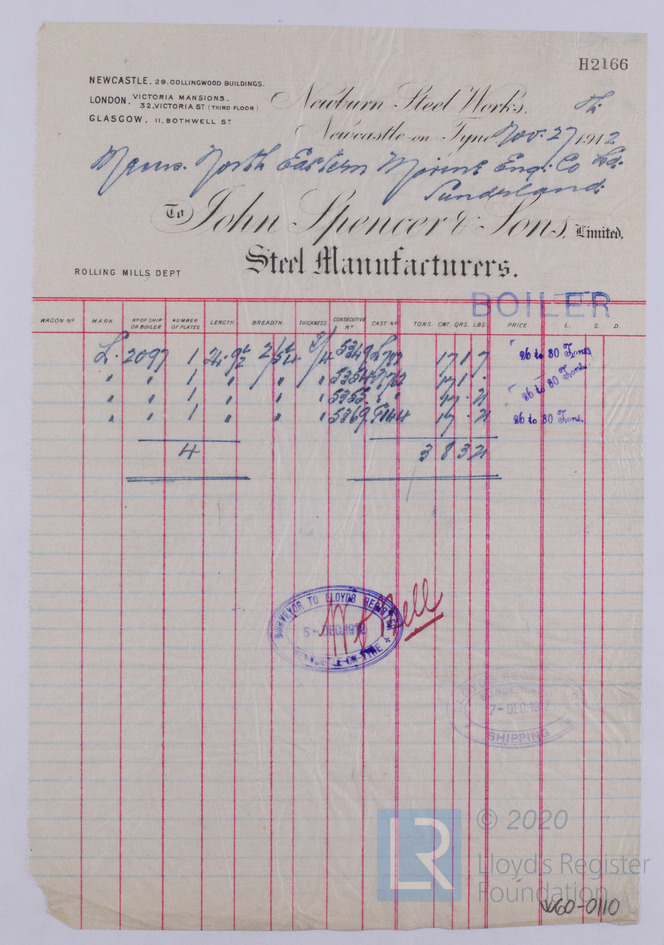 H2166
NEWCASTLE. 29. COLLINGWOOD BUILDINGS.
LONDON. VICTORIA MANSIONS.
32, VICTORIA ST (THIRD FLOOR)
GLASGOW. 11, BOTHWELL ST
Newburn Steel Works.
Newcastle-on Tyne Nov. 27 1912
Messrs. North Eastern Marine Eng. Co Ld.
Sunderland.
To John Spencer & Sons, Limited.
Steel Manufacturers.
ROLLING MILLS DEPT
BOILER
WAGON No MARK No OF SHIP OR BOILER NUMBER OF PLATES LENGTH BREADTH THICKNESS CONSECUTIVE No CAST No TONS. CWT. QRS. LBS PRICE L. S. D.
L. 2097 1 5349 17 1 7 26 to 30 Tons
" " 1 " " " 5354 17 1 - 26 to 30 Tons.
" " 1 " " " 5355 " " 17 - 21
" " 1 " " " 5369 17 - 21 26 to 30 Tons.
4 3 8 3 21
SURVEYOR TO LLOYDS REGISTER
NEWCASTLE-ON-TYNE
W Bell
7-DEC.1912
SHIPPING
LR © 2020
Lloyd's Register
Foundation
W60-0110